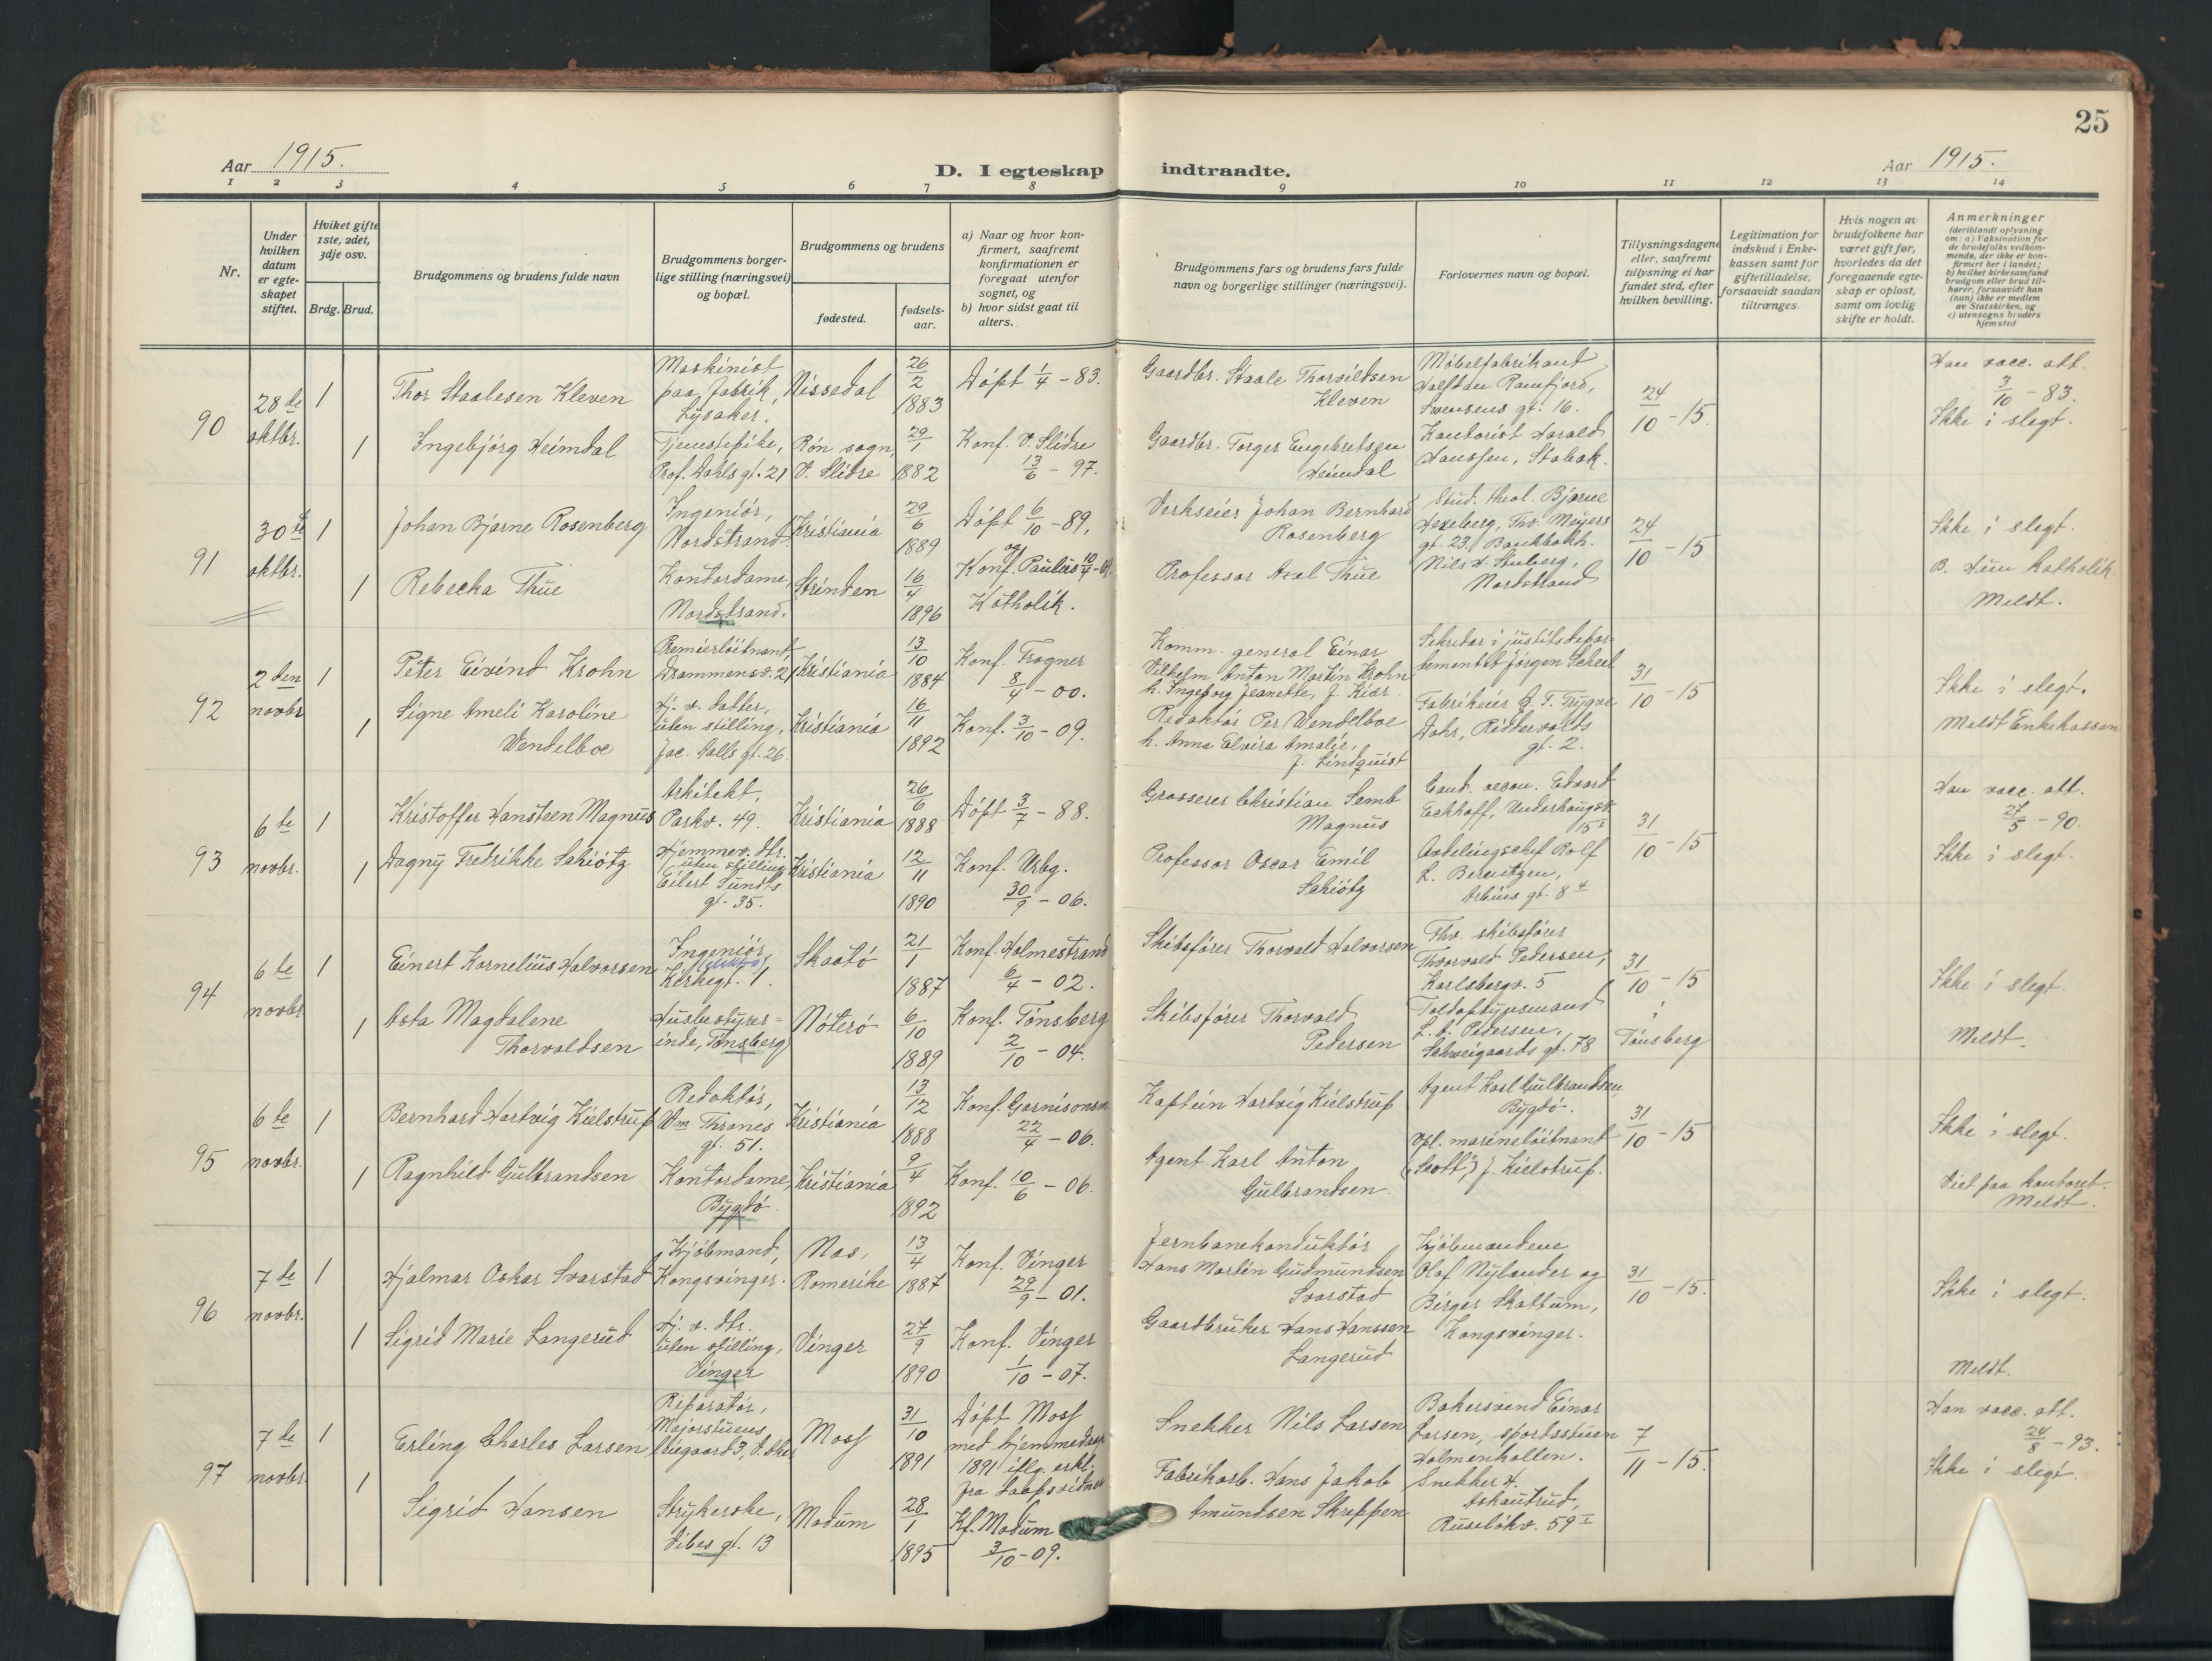 25
Aar 1915.
D. I egteskap indtraadte.
Aar 1915.
1 2 3 4 5 6 7 8 9 10 11 12 13 14
Nr.
Under hvilken datum er egteskapet stiftet.
Hviket gifte 1ste, 2det, 3dje osv.
Brdg. Brud.
Brudgommens og brudens fulde navn
Brudgommens borger-
lige stilling (næringsvei)
og bopæl.
Brudgommens og brudens
fødested.
fødsels-
aar.
a) Naar og hvor kon-
firmert, saafremt
konfirmationen er
foregaat utenfor
sognet, og
b) hvor sidst gaat til
alters.
Brudgommens fars og brudens fars fulde
navn og borgerlige stillinger (næringsvei).
Forlovernes navn og bopæl.
Tillysningsdagene
eller, saafremt
tillysning ei har
fundet sted, efter
hvilken bevilling.
Legitimation for
indskud i Enke-
kassen samt for
giftetilladelse,
forsaavidt saadan
tiltrænges.
Hvis nogen av
brudefolkene har
været gift før,
hvorledes da det
foregaaende egte-
skap er opløst,
samt om lovlig
skifte er holdt.
Anmerkninger
(deriblandt oplysning
om: a) Vaksination for
de brudefolks vedkom-
mende, der ikke er kon-
firmert her i landet;
b) hvilket kirkesamfund
brudgom eller brud til-
hører, forsaavidt han
(hun) ikke er medlem
av Statskirken, og
c) utensogns bruders
hjemsted
90
28de
oktbr.
1
Thor Staalesen Kleven
Maskinist
paa fabrik,
Lysaker.
Nissedal
26/2
1883
Døpt 1/4 - 83.
Gaardbr. Staale Thorvildsen
Kleven
Møbelfabrikant
Halfdan Ramfjord,
Svensens gt. 16.
24/10 - 15.
Han vacc. att.
3/10 - 83.
Ikke i slegt.
1
Ingebjørg Heimdal
Tjenestepike,
Prof. Dahls gt. 21
Røn sogn,
V. Slidre
29/1
1882
Konf. V. Slidre
13/6 - 97.
Gaardbr. Torger Engebretsen
Heimdal
Kontorist Harald
Hanssen, Stabæk.
91
30te
oktbr.
1
Johan Bjarne Rosenberg
Ingeniør,
Nordstrand.
Kristiania
29/6
1889
Døpt 6/10 - 89,
og
Konf. Paulus
Verkseier Johan Bernhard
Rosenberg
Stud. theol. Bjarne
Hexeberg, Thv. Meyers
gt. 23. Bankbokh.
24/10 - 15
Ikke i slegt.
1
Rebecka Thue
Kontordame,
Nordstrand.
Strinden
16/4
1896
Katholik.
Professor Axel Thue
Nils H. Stuberg,
Nordstrand
B. Hun katholik.
Meldt.
92
2den
novbr
1
Peter Eivind Krohn
Premierløitnant,
Drammensv. 21
Kristiania
13/10
1884
Konf. Frogner
8/4 - 00.
Komm. general Einar
Vilhelm Anton Martin Krohn
h. Ingeborg Jeanette, f. Kiær.
Sekretær i justitsdepar-
tementet Jørgen Scheel
31/10 - 15
Ikke i slegt.
1
Signe Ameli Karoline
Wendelboe
Hj. v. datter,
uten stilling,
Jac. Aalls gt. 26.
Kristiania
16/11
1892
Konf. 3/10 - 09.
Redaktør Per Wendelboe
h. Anna Elvira Amalie,
f. Lindquist
Fabrikeier G. F. Trygve
Dahr, Riddervolds
gt. 2.
Meldt Enkekassen
93
6te
novbr.
1
Kristoffer Hansteen Magnus
Arkitekt,
Parkv. 49.
Kristiania
26/6
1888
Døpt 3/7 - 88.
Grosserer Christian Semb
Magnus
Cand. oecon. Edvard
Eckhoff, Underhaugsv.
15 I
31/10 - 15
Han vacc. att.
27/5 - 90.
Ikke i slegt.
1
Dagny Fredrikke Schiøtz
Hjemmev. dtr.
uten stilling
Eilert Sundts
gt. 35.
Kristiania
12/11
1890
Konf. Urbg.
30/9 - 06.
Professor Oscar Emil
Schiøtz
Avdelingschef Rolf
L. Berntzen,
Arbins gt. 8
94
6te
novbr
1
Einert Kornelius Halvorsen
Ingeniør
Kirkegt. 1.
Skaatø
21/1
1887
Konf. Holmestrand
6/4 - 02.
Skibsfører Thorvald Halvorsen
Thv. skibsfører
Thorvald Pedersen,
Karlsbergv. 5
31/10 - 15
i
Tønsberg
Ikke i slegt.
1
Asta Magdalene
Thorvaldsen
Husbestyrer-
inde, Tønsberg
Nøterø
6/10
1889
Konf. Tønsberg
2/10 - 04.
Skibsfører Thorvald
Pedersen
Toldoptynsmand
L. A. Pedersen,
Schweigaards gt. 78
Meldt.
95
6te
novbr.
1
Bernhard Hartvig Kielstrup
Redaktør,
Wm Thranes
gt. 51.
Kristiania
13/12
1888
Konf. Garnisonsm
22/4 - 06.
Kaptein Hartvig Kielstrup
Agent Karl Gulbrandsen,
Bygdø.
31/10 - 15
Ikke i slegt.
1
Ragnhild Gulbrandsen
Kontordame,
Bygdø.
Kristiania
9/4
1892
Konf. 10/6 - 06.
Agent Karl Anton
Gulbrandsen.
Vpl. marineløitnant
("Scott") J. Kielstrup.
Viet paa kontoret.
Meldt.
96
7de
novbr.
1
Hjalmar Oskar Svarstad
Kjøbmand,
Kongsvinger.
Nes,
Romerike
13/4
1887
Konf. Vinger
29/9 - 01.
Jernbanekonduktør
Hans Martin Gudmundsen
Svarstad
Kjøbmændene
Olaf Nylander og
Birger Skattum,
Kongsvinger.
31/10 - 15.
Ikke i slegt.
1
Sigrid Marie Langerud
Hj. v. dtr.
uten stilling,
Vinger
Vinger
27/9
1890
Konf. Vinger
1/10 - 07.
Gaardbruker Hans Hanssen
Langerud
Meldt.
97
7de
novbr.
1
Erling Charles Larsen
Reparatør,
Majorstuens
Moss
31/10
1891
Døpt Moss
med hjemmedaap
1891 iflg. erkl.
fra daapsvidner
Snekker Nils Larsen
Bakersvend Einar
Larsen, sportsstuen
Holmenkollen.
7/11 - 15.
Han vacc. att.
24/8 - 93.
Ikke i slegt.
1
Sigrid Hansen
Strykerske,
Vibes gt. 13
Modum
28/1
1895
Kf. Modum
3/10 - 09.
Fabrikarb. Hans Jakob
Amundsen Skreppen
Snekker H.
Askautrud,
Ruseløkv. 59 I